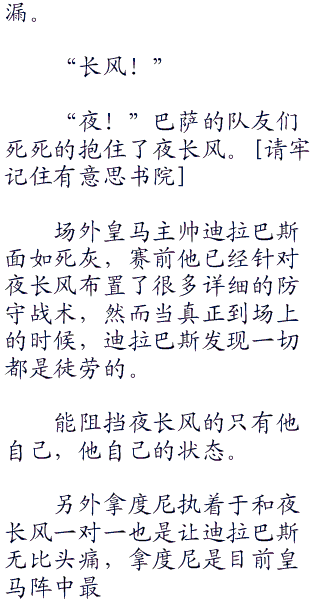 漏。
“长风！”
“夜！”巴萨的队友们
死死的抱住了夜长风。[请牢
记住有意思书院]
场外皇马主帅迪拉巴斯
面如死灰，赛前他已经针对
夜长风布置了很多详细的防
守战术，然而当真正到场上
的时候，迪拉巴斯发现一切
都是徒劳的。
能阻挡夜长风的只有他
自己，他自己的状态。
另外拿度尼执着于和夜
长风一对一也是让迪拉巴斯
无比头痛，拿度尼是目前皇
马阵中最